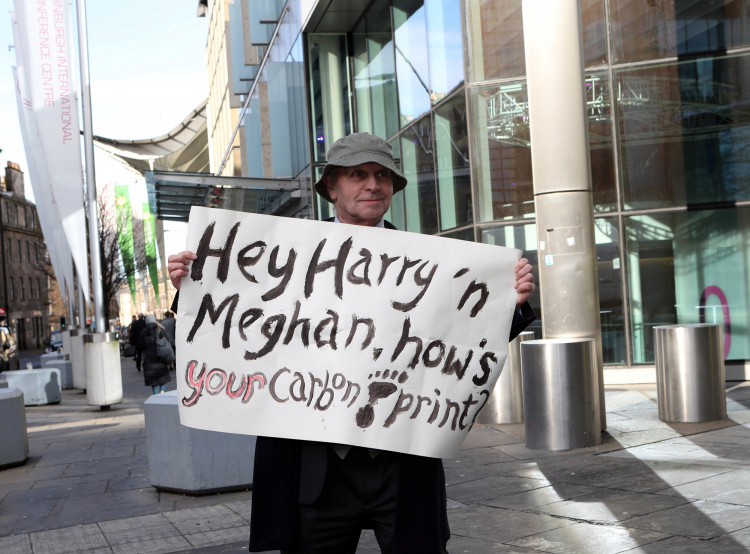 Hey Harry 'n
Meghan, how's
your carbon print?
INBURGH INTERNATIONAL
ONFERENCE CENTRE